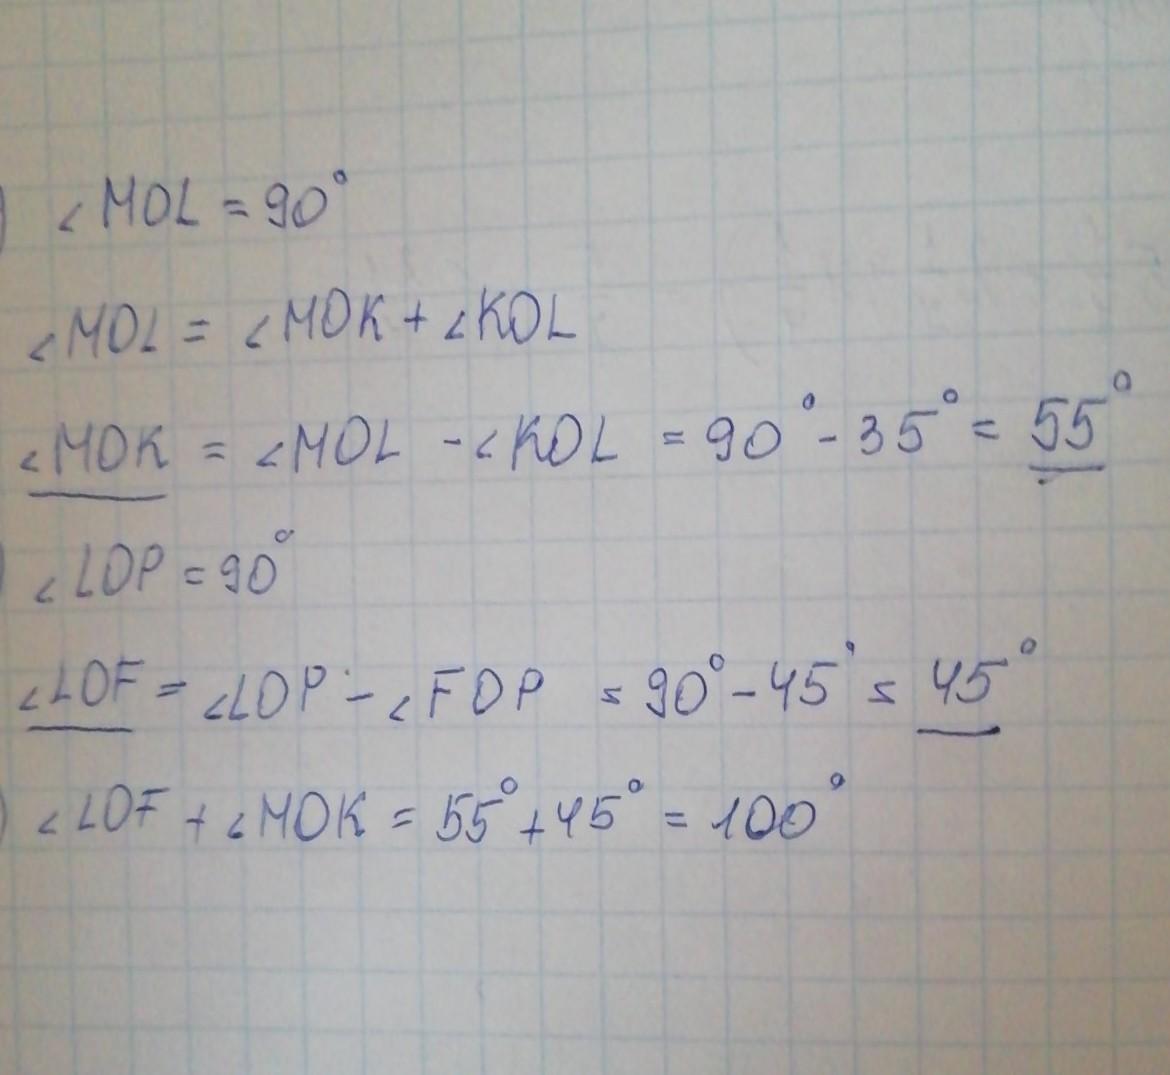 ) ∠MOL = 90°
∠MOL = ∠MOK + ∠KOL
∠MOK = ∠MOL - ∠KOL = 90° - 35° = 55°
) ∠LOP = 90°
∠LOF = ∠LOP - ∠FOP = 90° - 45° = 45°
) ∠LOF + ∠MOK = 55° + 45° = 100°